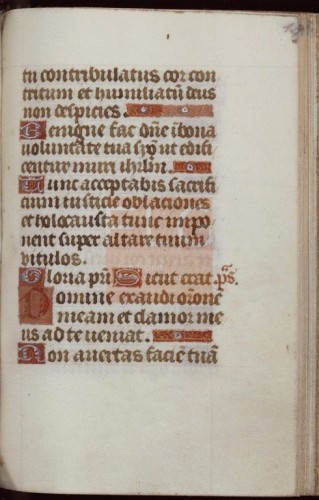 tu contribulatus cor con
tritum et humiliatū deus
non despicies.
Benigne fac dn̄e ī bona
voluntate tua syō ut edifi
centur muri ihrlm̄.
Tunc acceptabis sacrifi
cium iusticie oblationes
et holocausta tunc impo
nent super altare tuum
vitulos.
Gloria pr̄i Sicut erat. p̄s.
Domine exaudi orōnē
meam et clamor me
us ad te veniat.
Non avertas faciē tuā